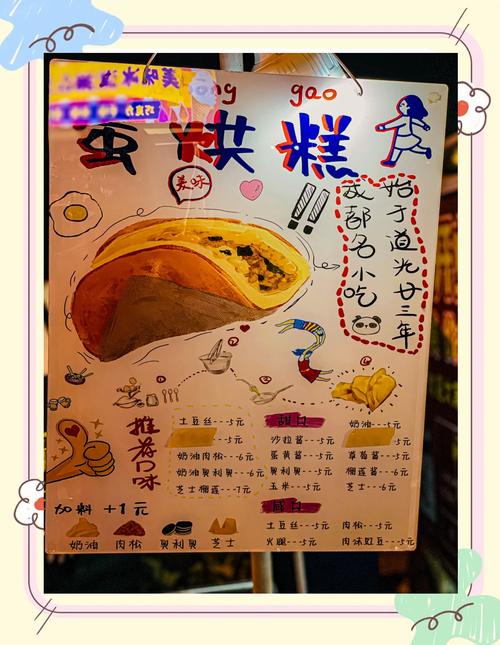 美味冰
ng gao
蛋烘糕
美味
始于道光廿三年
成都名小吃
推荐口味
土豆丝---5元
---5元
奶油肉松---6元
奶油奥利奥---6元
芝士榴莲---7元
甜口
沙拉酱---5元
蛋黄酱---5元
奥利奥---5元
玉米---5元
奶油---5元
5元
草莓酱---5元
榴莲酱---6元
咸口
土豆丝---5元
火腿---5元
肉松---5元
肉沫豇豆---5元
加料 +1元
奶油 肉松 奥利奥 芝士